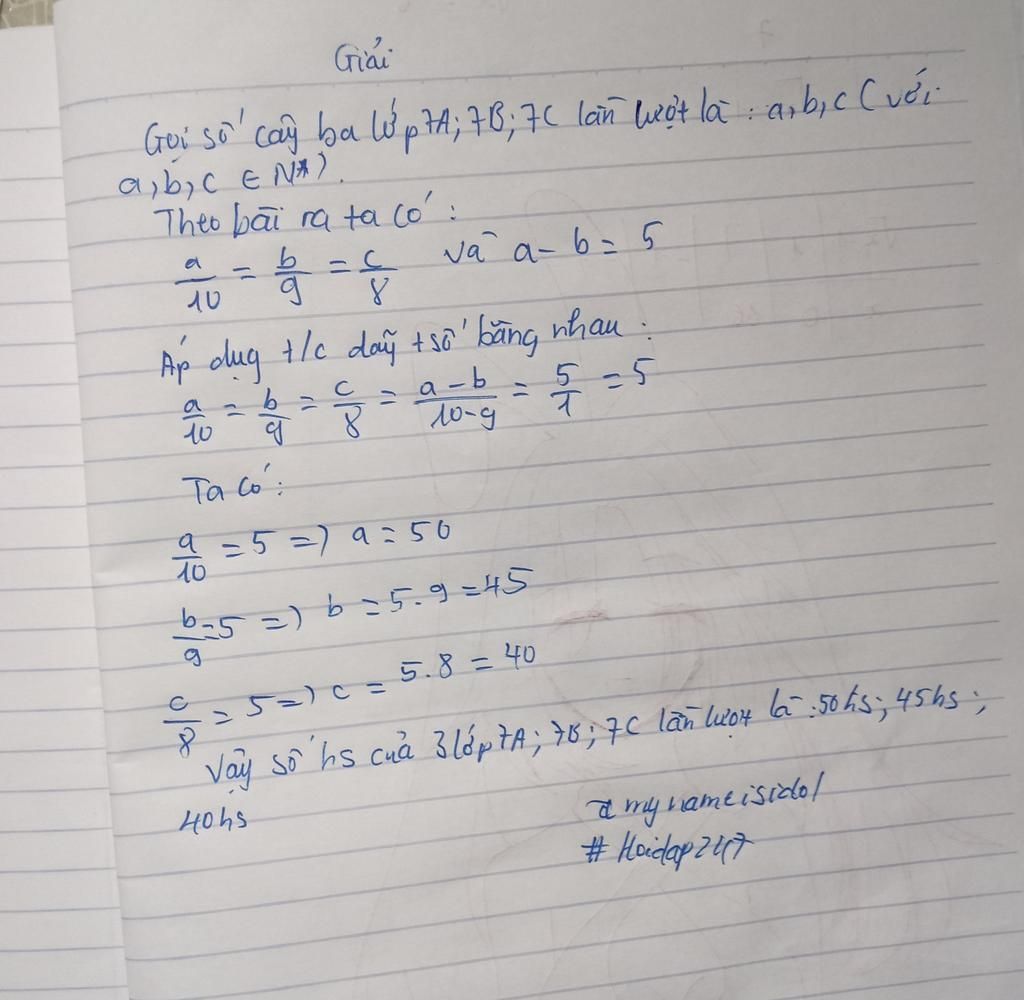 Giải
Gọi số cây ba lớp 7A; 7B; 7C lần lượt là : a, b, c ( với
a, b, c ∈ N*).
Theo bài ra ta có :
a/10 = b/9 = c/8 và a - b = 5
Áp dụg t/c dãy tsố bằng nhau :
a/10 = b/9 = c/8 = a-b/10-9 = 5/1 = 5
Ta có :
a/10 = 5 => a = 50
b/9 = 5 => b = 5.9 = 45
c/8 = 5 => c = 5.8 = 40
Vậy số hs của 3 lớp 7A; 7B; 7C lần lượt là : 50hs; 45hs;
40hs
mynameisidol
# Hoidap247